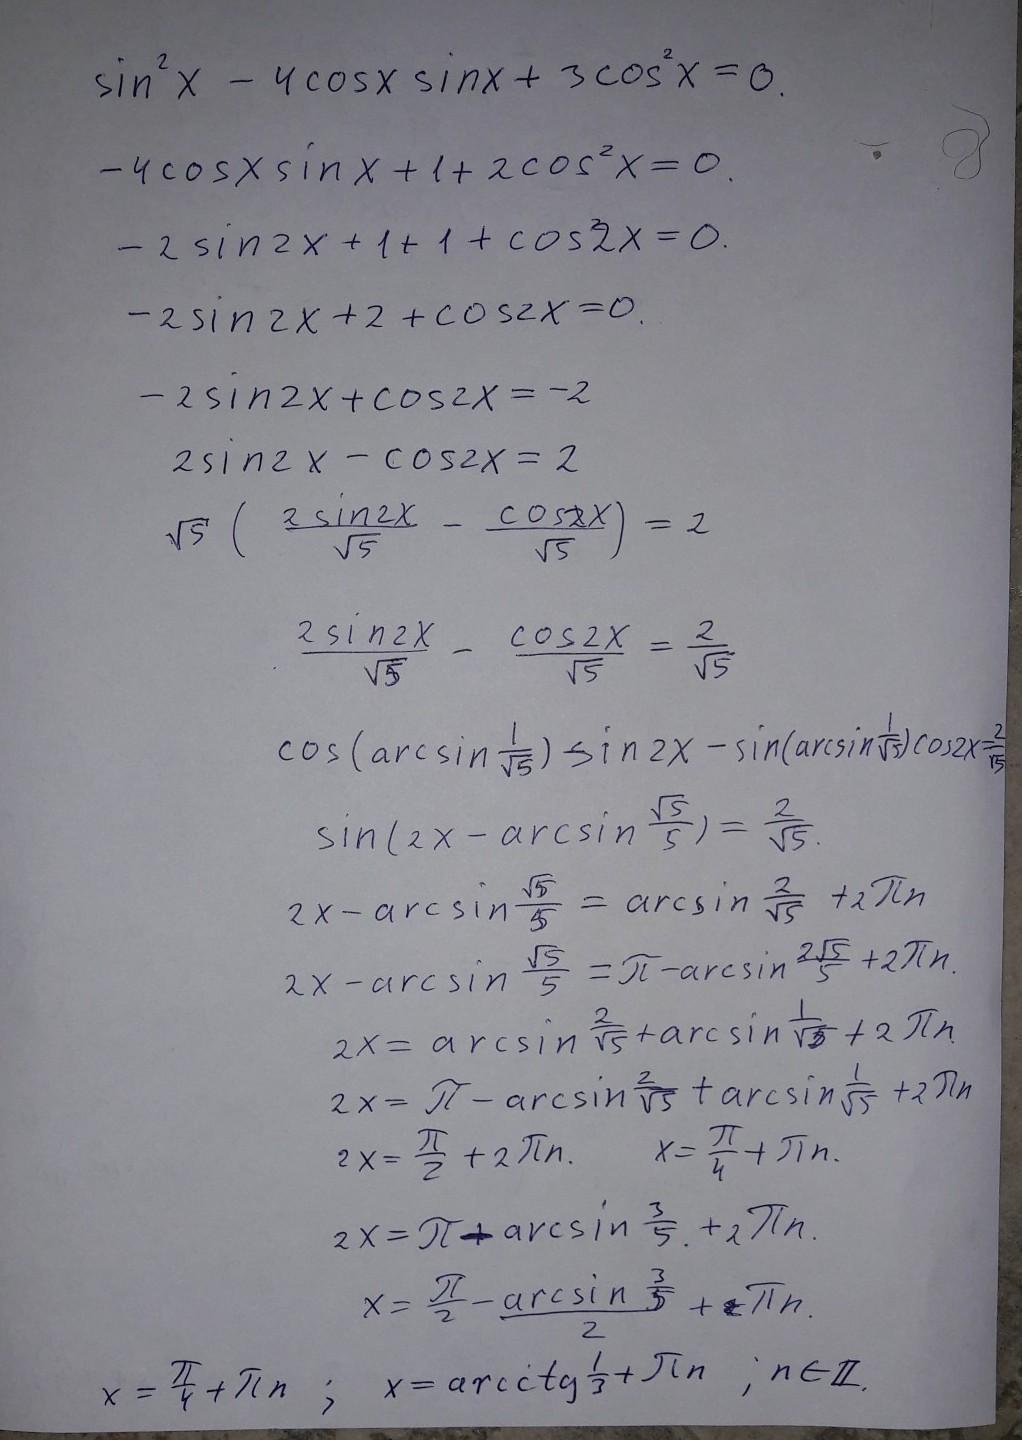 sin²x - 4cosx sinx + 3cos²x = 0.
-4cosx sinx + 1 + 2cos²x = 0.
-2sin2x + 1 + 1 + cos2x = 0.
-2sin2x + 2 + cos2x = 0.
-2sin2x + cos2x = -2
2sin2x - cos2x = 2
√5 ( 2sin2x/√5 - cos2x/√5 ) = 2
2sin2x/√5 - cos2x/√5 = 2/√5
cos(arcsin 1/√5) sin2x - sin(arcsin 1/√5) cos2x = 2/√5
sin(2x - arcsin √5/5) = 2/√5.
2x - arcsin √5/5 = arcsin 2/√5 + 2πn
2x - arcsin √5/5 = π - arcsin 2√5/5 + 2πn.
2x = arcsin 2/√5 + arcsin 1/√5 + 2πn
2x = π - arcsin 2/√5 + arcsin 1/√5 + 2πn
2x = π/2 + 2πn. x = π/4 + πn.
2x = π - arcsin 3/5. + 2πn.
x = π/2 - arcsin 3/5 / 2 + πn.
x = π/4 + πn ; x = arcctg 1/3 + πn ; n ∈ Z.